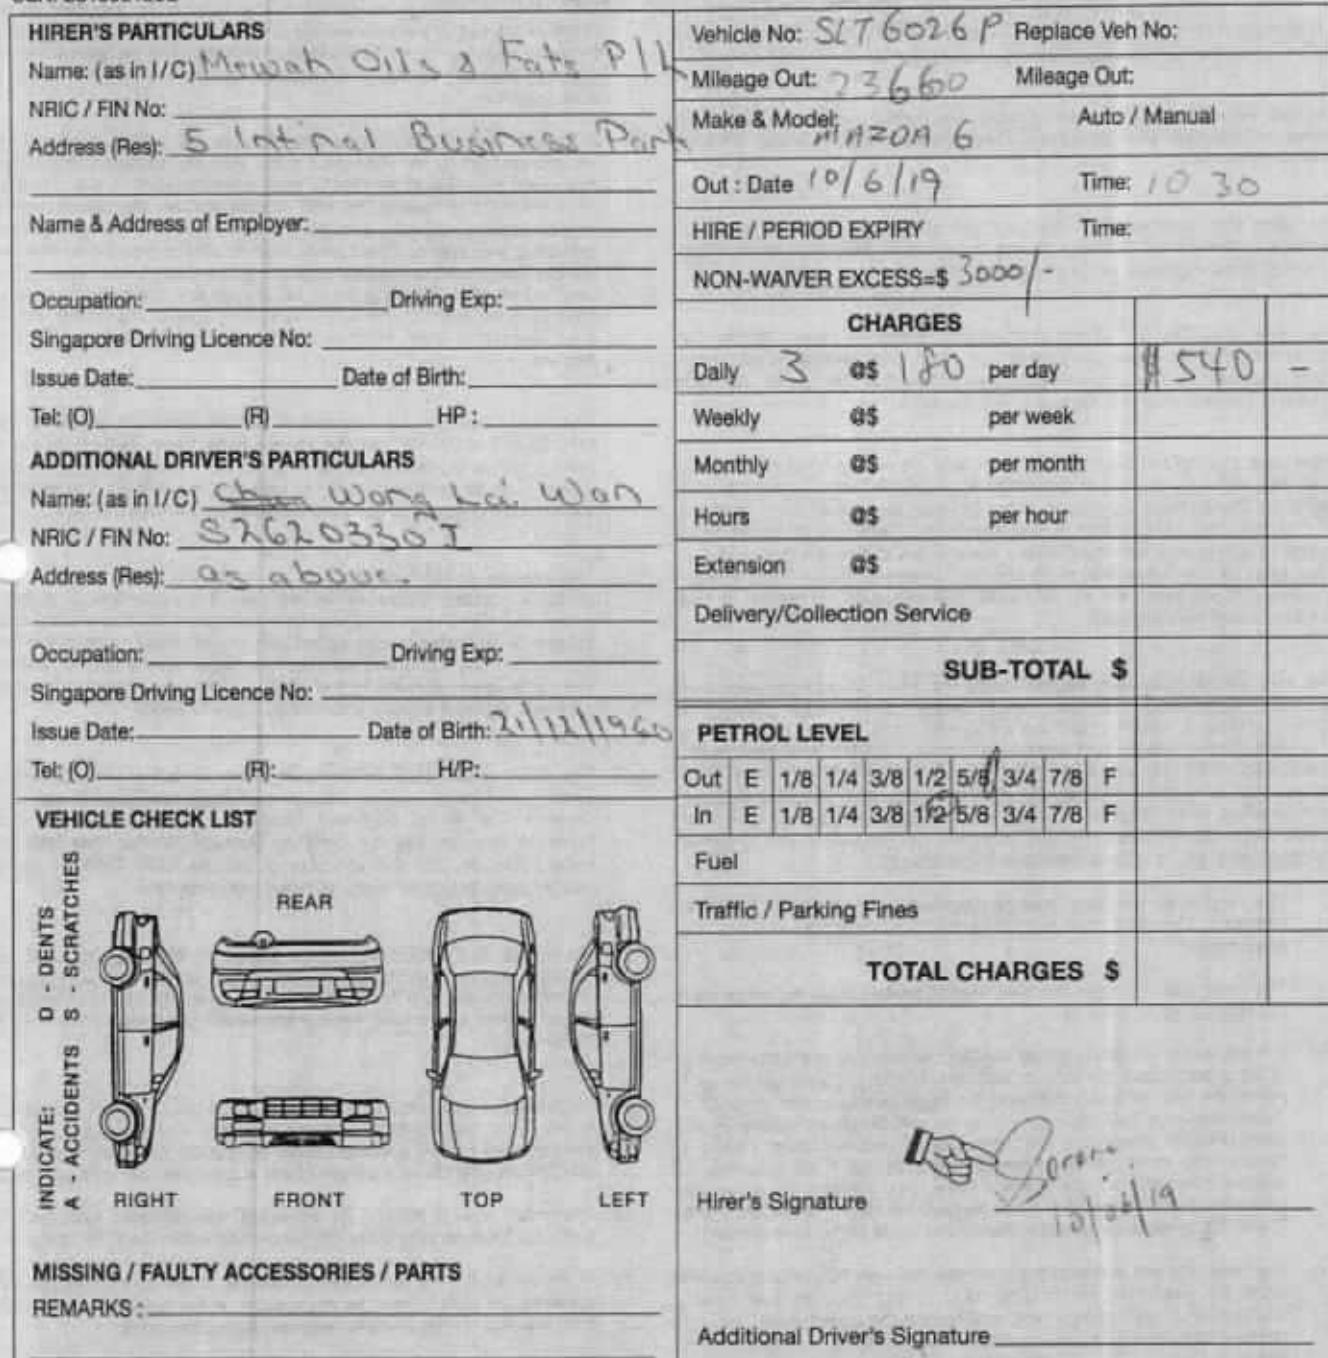 HIRER'S PARTICULARS
Name: (as in I/C) Mewah Oils & Fats P/L
NRIC / FIN No:
Address (Res): 5 Intrnal Business Park
Name & Address of Employer:
Occupation: Driving Exp:
Singapore Driving Licence No:
Issue Date: Date of Birth:
Tel: (O) (R) HP :
ADDITIONAL DRIVER'S PARTICULARS
Name: (as in I/C) Wong Lai Wan
NRIC / FIN No: S2620330I
Address (Res): as above.
Occupation: Driving Exp:
Singapore Driving Licence No:
Issue Date: Date of Birth: 21/12/1960
Tel: (O) (R): H/P:
VEHICLE CHECK LIST
INDICATE: D - DENTS
A - ACCIDENTS S - SCRATCHES
REAR
RIGHT FRONT TOP LEFT
MISSING / FAULTY ACCESSORIES / PARTS
REMARKS :
Vehicle No: SLT6026P Replace Veh No:
Mileage Out: 23660 Mileage Out:
Make & Model: MAZDA 6 Auto / Manual
Out : Date 10/6/19 Time: 10 30
HIRE / PERIOD EXPIRY Time:
NON-WAIVER EXCESS=$ 3000/-
CHARGES
Daily 3 @$ 180 per day $540 -
Weekly @$ per week
Monthly @$ per month
Hours @$ per hour
Extension @$
Delivery/Collection Service
SUB-TOTAL $
PETROL LEVEL
Out E 1/8 1/4 3/8 1/2 5/8 3/4 7/8 F
In E 1/8 1/4 3/8 1/2 5/8 3/4 7/8 F
Fuel
Traffic / Parking Fines
TOTAL CHARGES $
Hirer's Signature
10/06/19
Additional Driver's Signature